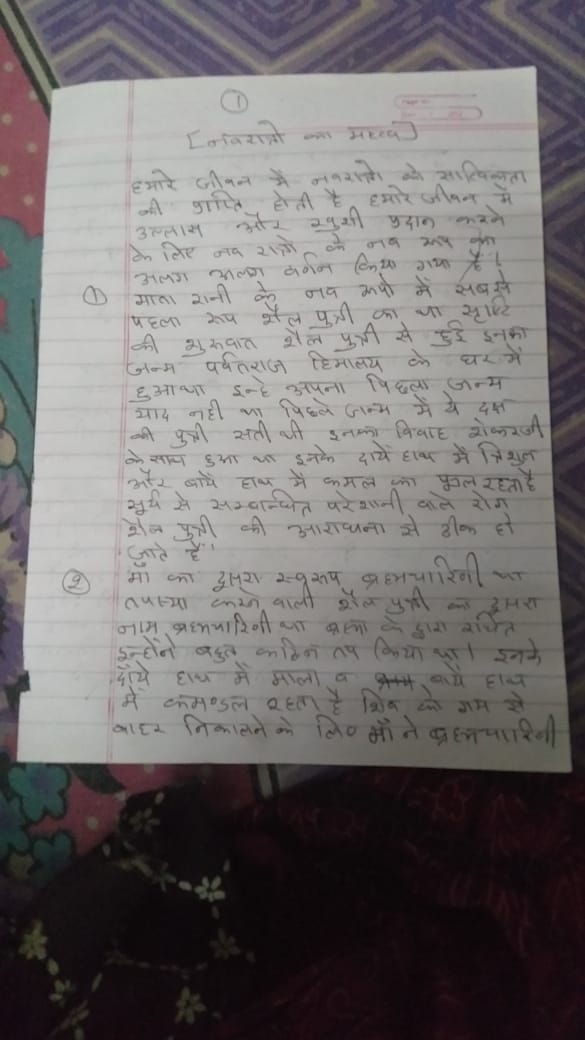 1
[नवरात्रो का महत्व]
हमारे जीवन मे नवरात्रो को सात्विकता
की प्राप्ति होती है हमारे जीवन मे
उल्लास और खुशी प्रदान करने
के लिए नव रात्रो के नव रूप का
अलग अलग वर्णन किया गया है।
1 माता रानी के नव रूपो में सबसे
पहला रूप शैल पुत्री का था सृष्टि
की शुरुवात शैल पुत्री से हुई इनका
जन्म पर्वतराज हिमालय के घर में
हुआ था इन्हे अपना पिछला जन्म
याद नही था पिछले जन्म में ये दक्ष
की पुत्री सती थी इनका विवाह शंकरजी
के साथ हुआ था इनके दायें हाथ में त्रिशुल
और बायें हाथ में कमल का फुल रहता है
सूर्य से सम्बन्धित परेशानी वाले रोग
शैल पुत्री की आराधना से ठीक हो
जाते हैं।
2 माँ का दूसरा स्वरूप ब्रह्मचारिनी था
तपस्या करने वाली शैल पुत्री का दुसरा
नाम ब्रह्मचारिनी था ब्रह्मा के द्वारा रचित
इन्होंने बहुत कठिन तप किया था। इनके
दाँये हाथ में माला व बायें हाथ
में कमण्डल रहता है शिव को गम से
बाहर निकालने के लिए माँ ने ब्रह्मचारिनी